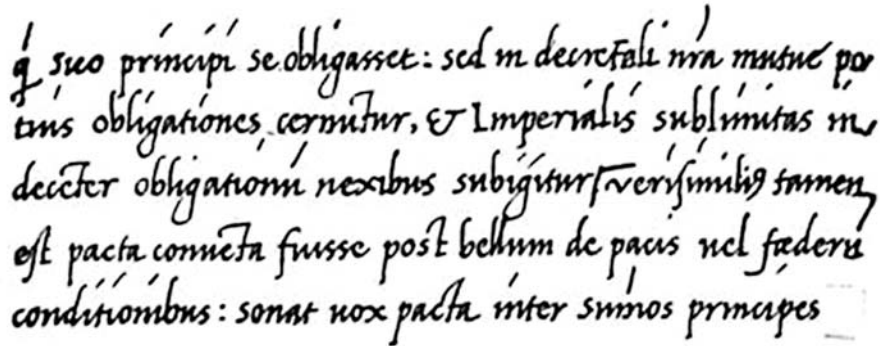 q̃ suo principi se obligasset: sed in decretali nr̃a mutue po
tius obligationes cernũtur, & Imperialis sublimitas in,
decẽter obligationũ nexibus subigitur verisimiliꝰ tamen,
est pacta conuẽta fuisse post bellum de pacis uel fœderũ
conditionibus: sonat uox pacta inter sum̃os principes